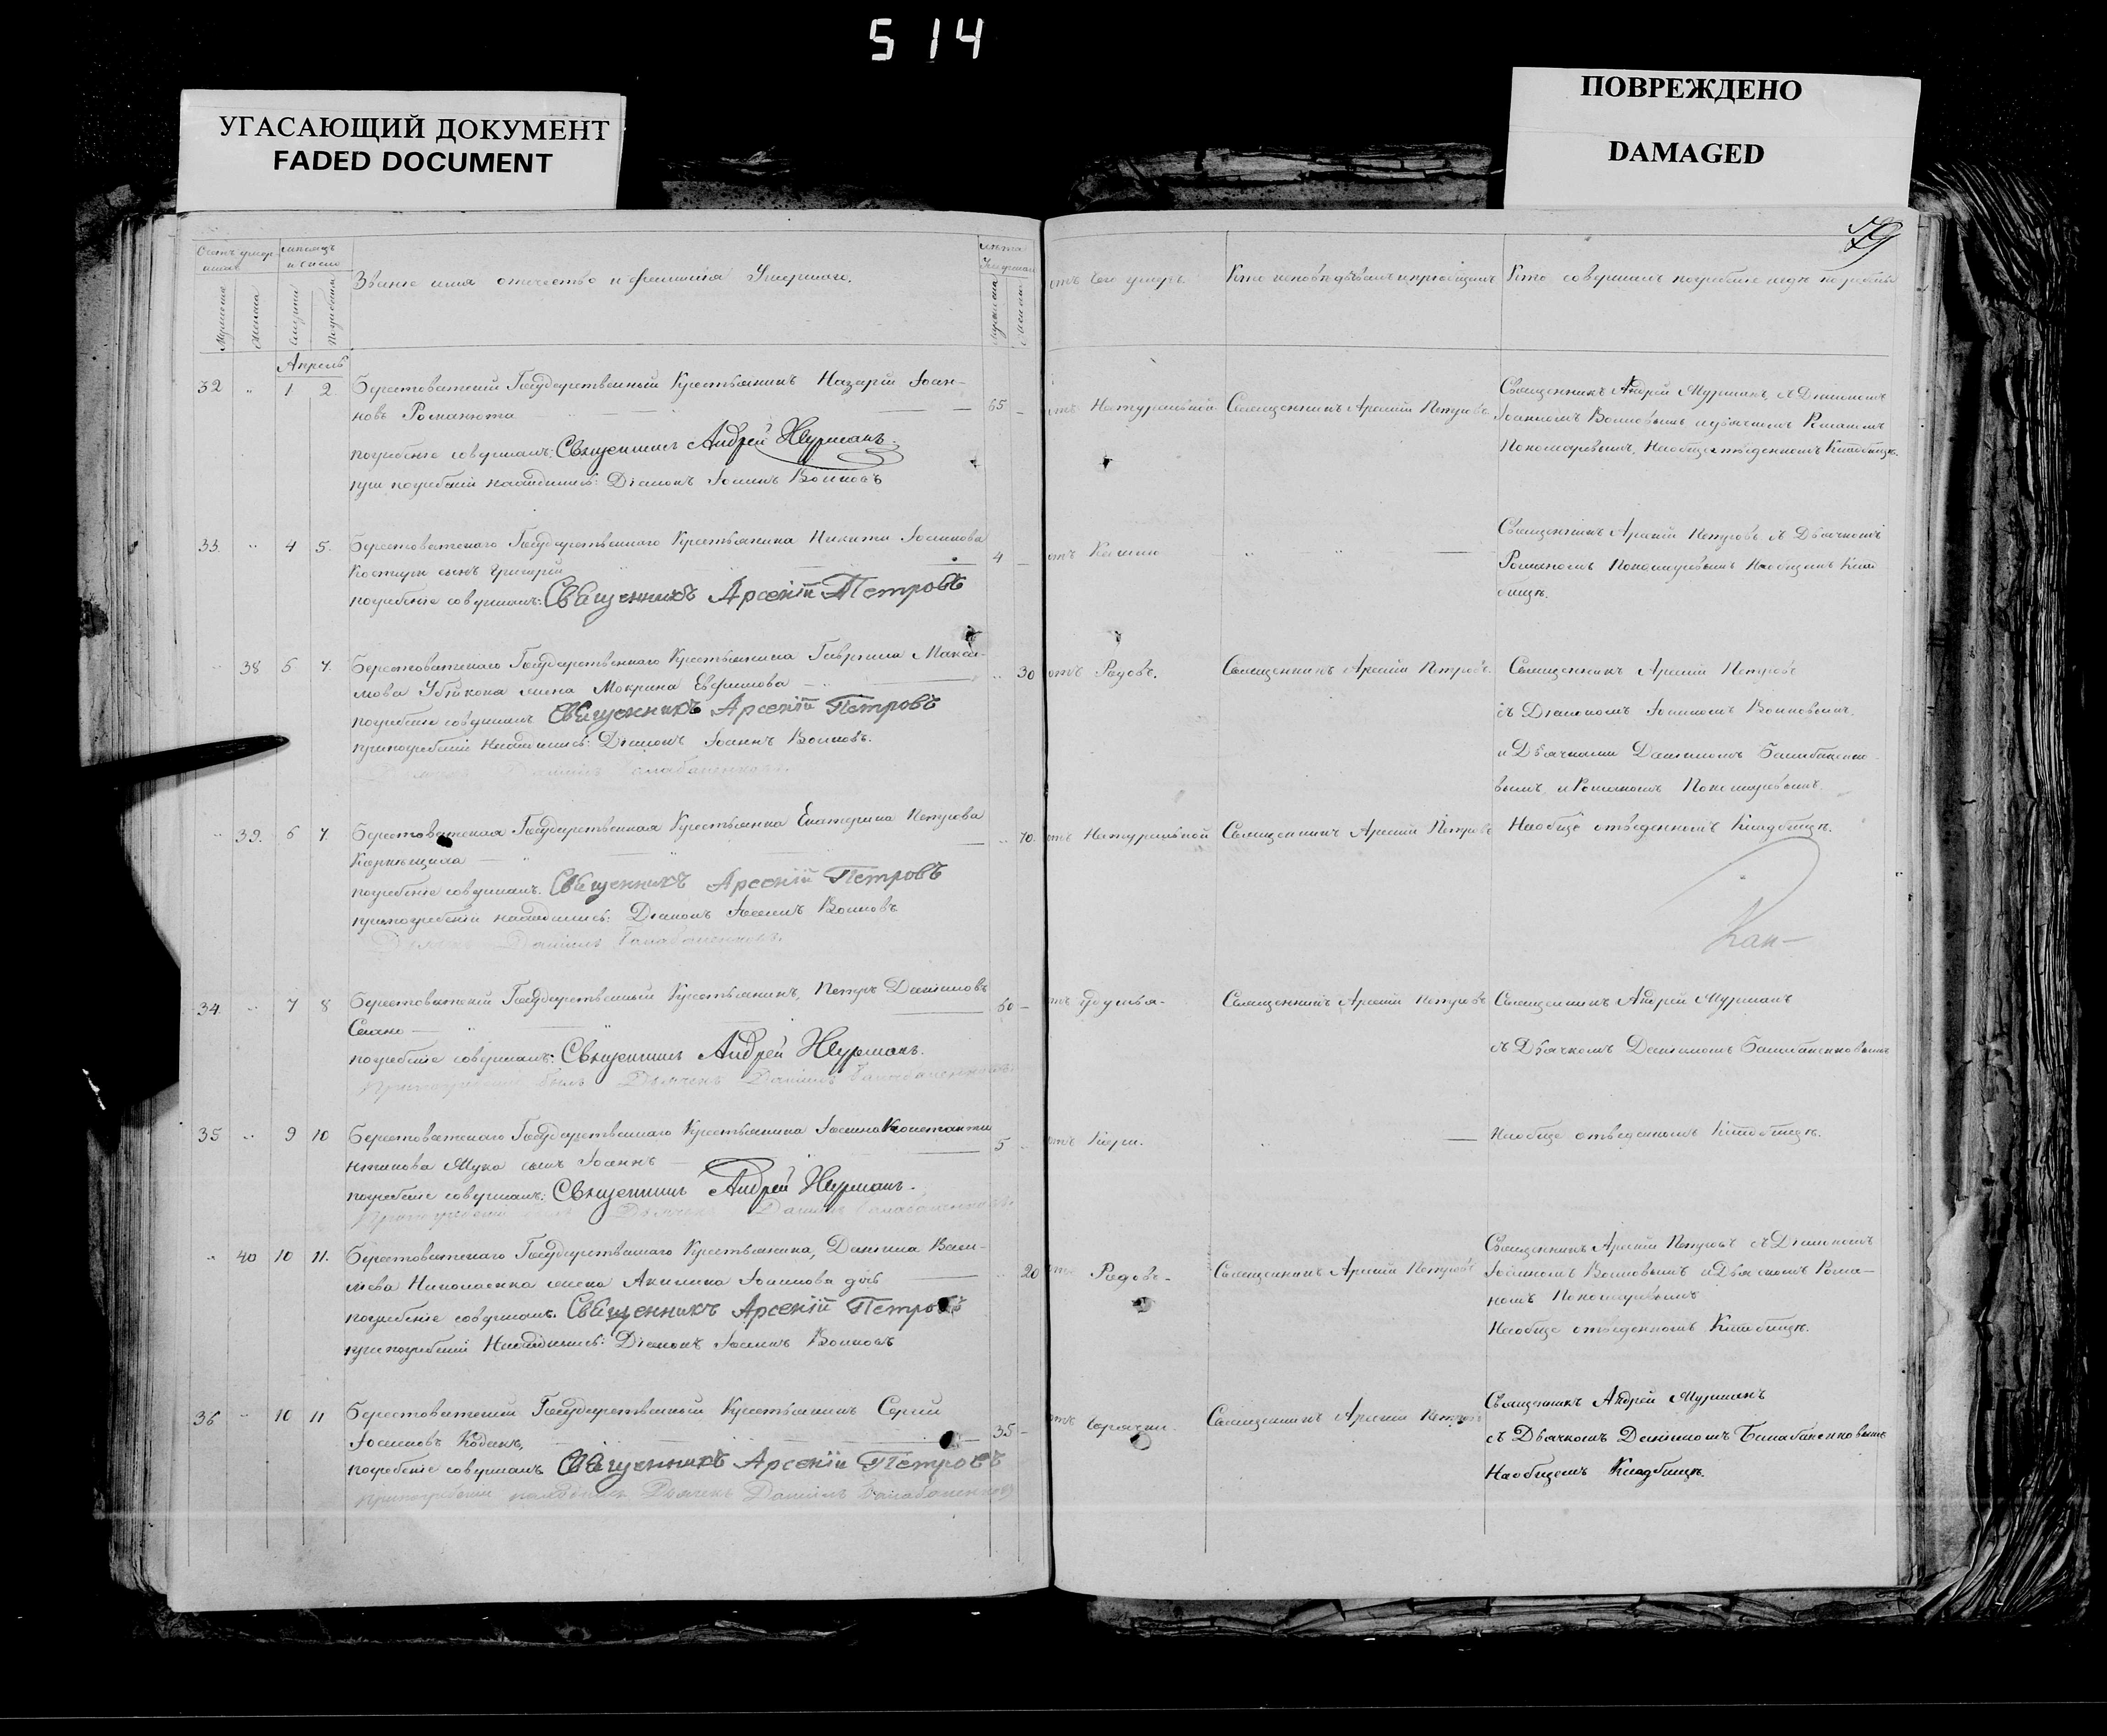 5 14
УГАСАЮЩИЙ ДОКУМЕНТ
FADED DOCUMENT
ПОВРЕЖДЕНО
DAMAGED
79
Счетъ умер-
шихъ
мѣсяцъ
и число
Мужеска
Женска
Смерти
Погребенія
Званіе имя отечество и фамилія Умершаго.
лѣта
Умершаго
Мужеска
Женска
отъ чего умеръ
Кто исповѣдывалъ и пріобщалъ
Кто совершалъ погребеніе и гдѣ погребены
Апрель
32 " 1 2. Берестоватскій Государственный Крестьянинъ Назарій Іоан-
новъ Романюта 65 -
погребеніе совершалъ: Священникъ Андрей Мурманъ.
при погребеніи находились: Діаконъ Іоаннъ Воиновъ
отъ Натуральной Священникъ Арсеній Петровъ
Священникъ Андрей Мурманъ, съ Діакономъ
Іоанномъ Воиновымъ и дьячкомъ Романомъ
Пономаревымъ, На обще отведенномъ Кладбищѣ.
33. " 4 5. Берестоватскаго Государственнаго Крестьянина Никиты Іоаннова
Костыри сынъ Григорій 4 -
погребеніе совершалъ: Священникъ Арсеній Петровъ
отъ Кашлю " "
Священникъ Арсеній Петровъ съ Дьячкомъ
Романомъ Пономаревымъ На общемъ Клад
бищѣ.
" 38 5 7. Берестоватскаго Государственнаго Крестьянина Гавріила Макси-
мова жена Мокрина Евфимова " 30
погребеніе совершалъ Священникъ Арсеній Петровъ
при погребеніи Находились: Діаконъ Іоаннъ Воиновъ.
Дьячекъ Даніилъ Балабаненковъ.
отъ Родовъ. Священникъ Арсеній Петровъ.
Священникъ Арсеній Петровъ
съ Діакономъ Іоанномъ Воиновымъ,
и Дьячками Даніиломъ Балабаненко-
вымъ и Романомъ Пономаревымъ.
" 39. 6 7. Берестоватская Государственная Крестьянка Екатерина Петрова
" 70.
погребеніе совершалъ. Священникъ Арсеній Петровъ
при погребеніи находились: Діаконъ Іоаннъ Воиновъ
Дьячекъ Даніилъ Балабаненковъ.
отъ Натуральной Священникъ Арсеній Петровъ
На обще отведенномъ Кладбищѣ.
34. " 7 8 Берестоватскій Государственный Крестьянинъ, Петръ Даніиловъ
60 -
погребеніе совершалъ: Священникъ Андрей Мурманъ.
При погребеніи былъ Дьячекъ Даніилъ Балабаненковъ
Священникъ Арсеній Петровъ
Священникъ Андрей Мурманъ
съ Дьячкомъ Даніиломъ Балабаненковымъ
35 " 9 10 Берестоватскаго Государственнаго Крестьянина Іоанна Константи
нтинова Мука сынъ Іоаннъ 5 -
погребеніе совершалъ: Священникъ Андрей Мурманъ.
При погребеніи былъ Дьячекъ Даніилъ Балабаненковъ.
отъ Кори. "
На обще отведенномъ Кладбищѣ.
" 40 10 11. Берестоватскаго Государственнаго Крестьянина, Даніила Васи-
лиева Николаенка жена Акилина Іоаннова " 20
погребеніе совершалъ. Священникъ Арсеній Петровъ
при погребеніи Находились: Діаконъ Іоаннъ Воиновъ
отъ Родовъ. Священникъ Арсеній Петровъ
Священникъ Арсеній Петровъ съ Діакономъ
Іоанномъ Воиновымъ и Дьячкомъ Рома-
номъ Пономаревымъ
На обще отведенномъ Кладбищѣ.
36 " 10 11 Берестоватский Государственный Крестьянинъ Сергій
Іоанновъ 35 -
погребеніе совершалъ Священникъ Арсеній Петровъ
При погребеніи находился Дьячекъ Даніилъ Балабаненковъ
отъ горячки. Священникъ Арсеній Петровъ
Священникъ Андрей Мурманъ
съ Дьячкомъ Даніиломъ Балабаненковымъ
На общемъ Кладбищѣ.